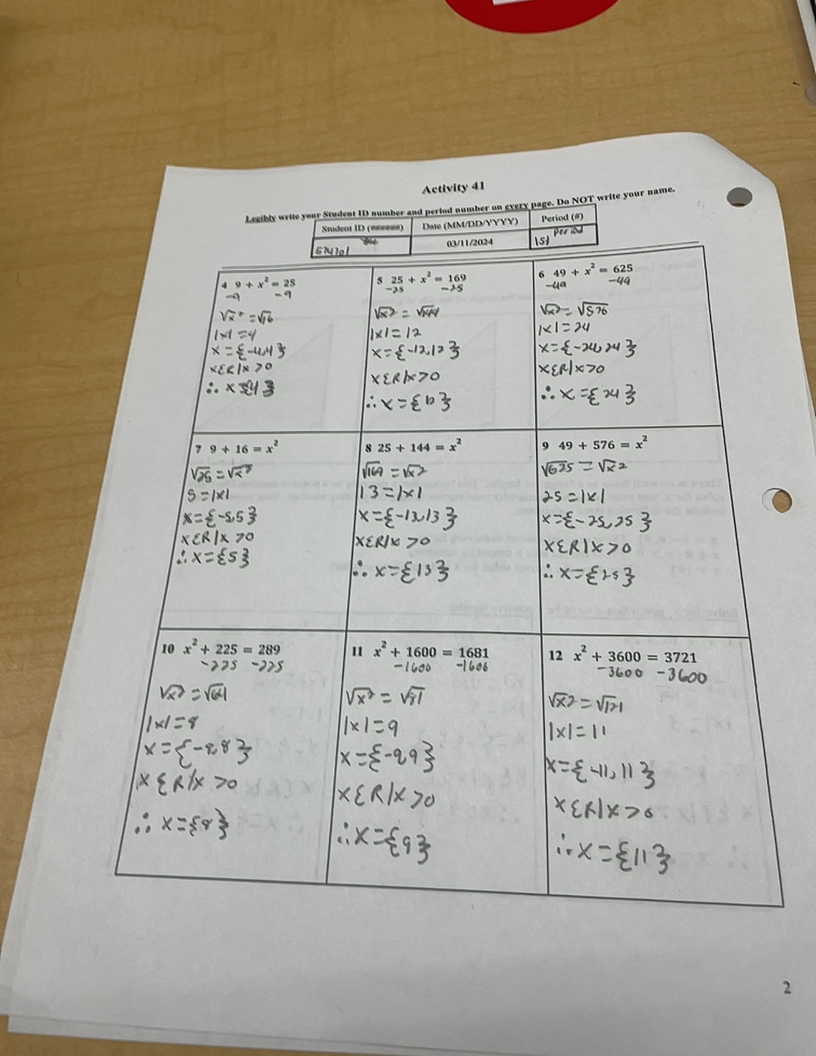 Activity 41
Legibly write your Student ID number and period number on every page. Do NOT write your name.
Student ID (######) Date (MM/DD/YYYY) Period (#)
03/11/2024 1st period
4 9 + x² = 25
-9 -9
√x² = √16
|x| = 4
x = {-4,4}
x ε R | x > 0
∴ x = {4}
5 25 + x² = 169
-25 -25
√x² = √144
|x| = 12
x = {-12,12}
x ε R | x > 0
∴ x = {12}
6 49 + x² = 625
-49 -49
√x² = √576
|x| = 24
x = {-24,24}
x ε R | x > 0
∴ x = {24}
7 9 + 16 = x²
√25 = √x²
5 = |x|
x = {-5,5}
x ε R | x > 0
∴ x = {5}
8 25 + 144 = x²
√169 = √x²
13 = |x|
x = {-13,13}
x ε R | x > 0
∴ x = {13}
9 49 + 576 = x²
√625 = √x²
25 = |x|
x = {-25,25}
x ε R | x > 0
∴ x = {25}
10 x² + 225 = 289
-225 -225
√x² = √64
|x| = 8
x = {-8,8}
x ε R | x > 0
∴ x = {8}
11 x² + 1600 = 1681
-1600 -1600
√x² = √81
|x| = 9
x = {-9,9}
x ε R | x > 0
∴ x = {9}
12 x² + 3600 = 3721
-3600 -3600
√x² = √121
|x| = 11
x = {-11,11}
x ε R | x > 0
∴ x = {11}
2